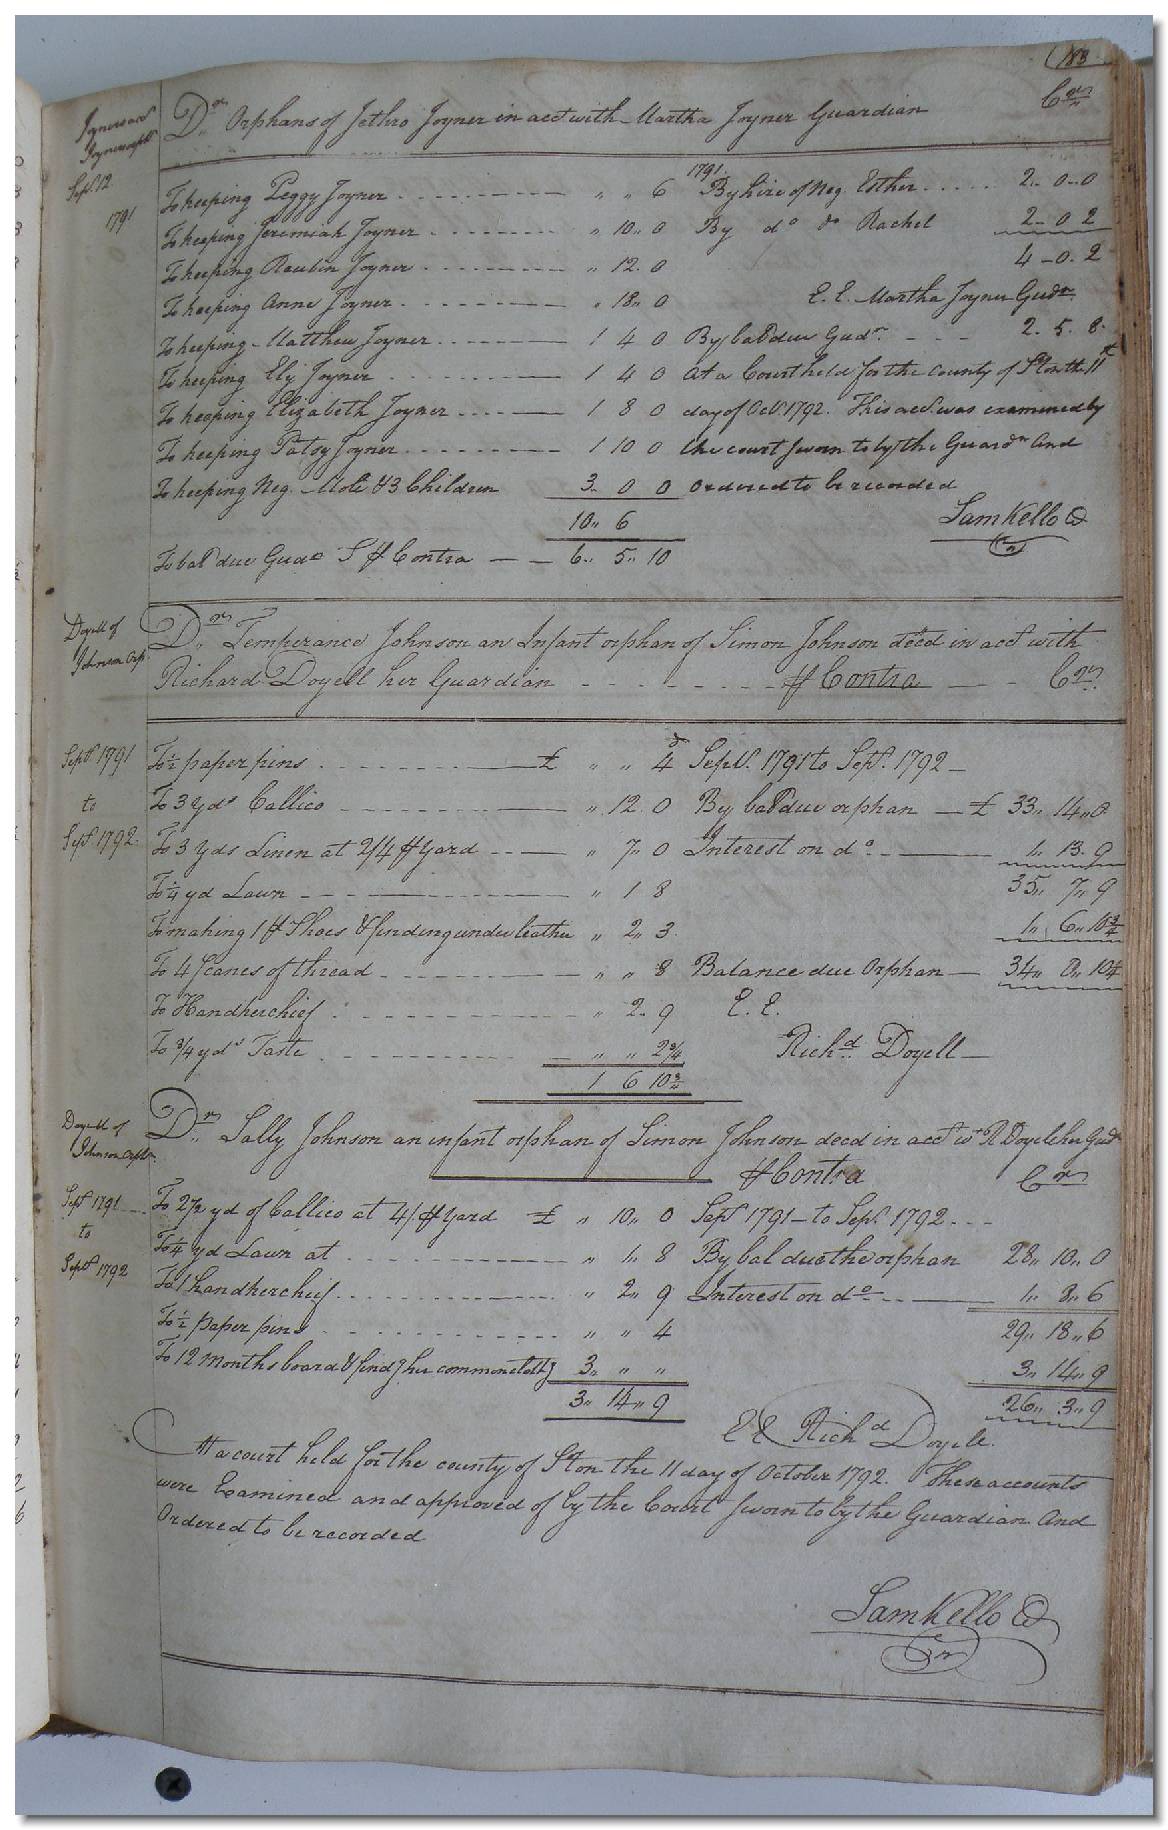 183
Joyners acct
Joyners orphs
Dr. Orphans of Jethro Joyner in acct with Martha Joyner Guardian Cr.
Sept. 12
1791
To keeping Peggy Joyner " " 6 1791. By hire of Neg. Esther 2.. 0..0
To keeping Jeremiah Joyner " 10.. 0 By do do Rachel 2.. 0 2
To keeping Reubin Joyner " 12. 0 4 - 0. 2
To keeping Anne Joyner " 18.. 0 E. E. Martha Joyner Gudn.
To keeping Matthew Joyner 1 4 0 By bal due Gudn. 2. 5. 8.
To keeping Ely Joyner 1 4 0 At a Court held for the county of Ston the 11th
To keeping Elizabeth Joyner 1 8 0 day of Oct. 1792. This acct. was examined by
To keeping Patsy Joyner 1 10 0 the court sworn to by the Guardn And
To keeping Neg. & 3 Children 3. 0 0 ordered to be recorded
10.. 6 Sam Kello
To bal due Gudn Contra 6.. 5.. 10
Doyell of
Johnson Orp.
Dr. Temperance Johnson an Infant orphan of Simon Johnson decd in acct with
Richard Doyell her Guardian Contra Cr.
Sept. 1791
to
Sept. 1792.
To ½ paper pins £ " " 4d Sept. 1791 to Sept. 1792 -
To 3 Yds Callico " 12. 0 By bal due orphan - £ 33.. 14..0
To 3 Yds Linen at 2/4 Yard " 7.. 0 Interest on do. 1.. 13. 9
To ¼ yd Lawn " 1 8 35.. 7.. 9
To making 1 Shoes & finding under leather " 2.. 3. 1.. 6.. 10 ¾
To 4 Scanes of thread " " 8 Balance due Orphan 34.. 0.. 10 ¼
To Handkerchief " 2. 9 E. E.
To ¾ yds Taste " " 2 ¾ Richd. Doyell
1 6 10 ¾
Doyell of
Johnson Orph.
Dr. Sally Johnson an infant orphan of Simon Johnson decd in acct wt R Doyel her Gudn
Contra Cr
Sept 1791
to
Sept 1792
To 2½ yd of Callico at 4/. Yard £ " 10.. 0 Sept 1791 - to Sept. 1792
To ¼ yd Lawn at " 1.. 8 By bal due the orphan 28.. 10.. 0
To 1 handkerchief " 2.. 9 Interest on do 1.. 8.. 6
To ½ paper pins " " 4 29.. 18.. 6
To 12 months board & findg her common 3.. " " 3.. 14.. 9
3.. 14.. 9 26.. 3.. 9
E E Richd Doyell.
At a court held for the county of Ston the 11 day of October 1792. These accounts
were Examined and approved of by the Court sworn to by the Guardian And
Ordered to be recorded
Sam Kello